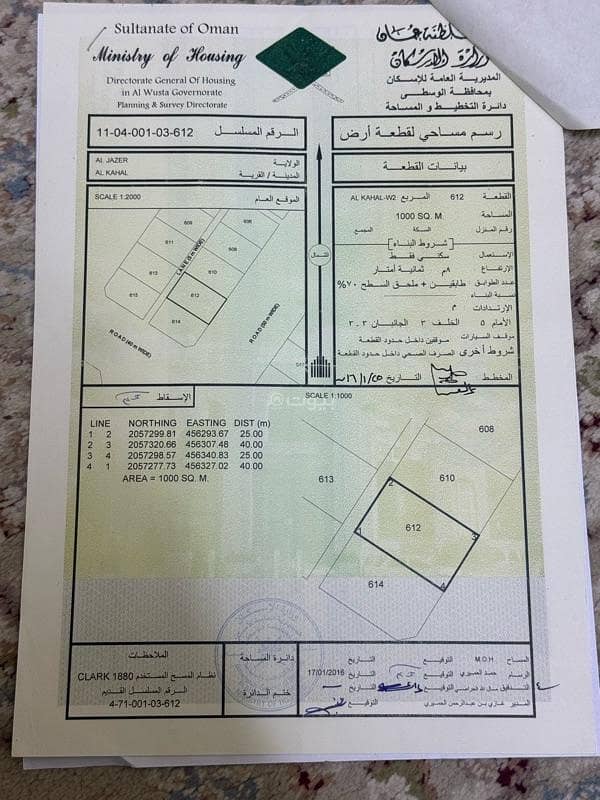 Sultanate of Oman
Ministry of Housing
Directorate General Of Housing
in Al Wusta Governorate
Planning & Survey Directorate
سلطنة عمان
وزارة الإسكان
المديرية العامة للإسكان
بمحافظة الوسطى
دائرة التخطيط و المساحة
الرقم المسلسل 11-04-001-03-612
رسم مساحي لقطعة أرض
AL JAZER الولاية
AL KAHAL المدينة / القرية
بيانات القطعة
SCALE 1:2000 الموقع العام
609
606
611
608
613
610
615
612
614
LANE (5 m WIDE)
ROAD (40 m WIDE)
ROAD (50 m WIDE)
الشمال
القطعة 612 المربع AL KAHAL-W2
المساحة 1000 SQ. M.
رقم المنزل السكة المجمع
شروط البناء
الإستعمال سكني فقط
الإرتفاع ٩م ثمانية أمتار
عدد الطوابق طابقين + ملحق السطح ٧٠%
نسبة البناء
الإرتدادات م
الأمام ٥ الخلف ٣ الجانبان ٣ـ٣
موقف السيارات موقفين داخل حدود القطعة
شروط أخرى الصرف الصحي داخل حدود القطعة
المخطط التاريخ
الإسقاط
SCALE 1:1000
LINE NORTHING EASTING DIST (m)
1 2 2057299.81 456293.67 25.00
2 3 2057320.66 456307.48 40.00
3 4 2057298.57 456340.83 25.00
4 1 2057277.73 456327.02 40.00
AREA = 1000 SQ. M.
608
613
610
612
614
1
2
3
4
بيوت
الملاحظات
نظام المسح المستخدم CLARK 1880
الرقم المسلسل القديم
4-71-001-03-612
دائرة المساحة
ختم الدائرة
المساح M.O.H التوقيع التاريخ
الرسام حمد العميري التوقيع التاريخ 17/01/2016
التدقيق التوقيع التاريخ
المدير غازي بن عبدالرحمن العميري التوقيع